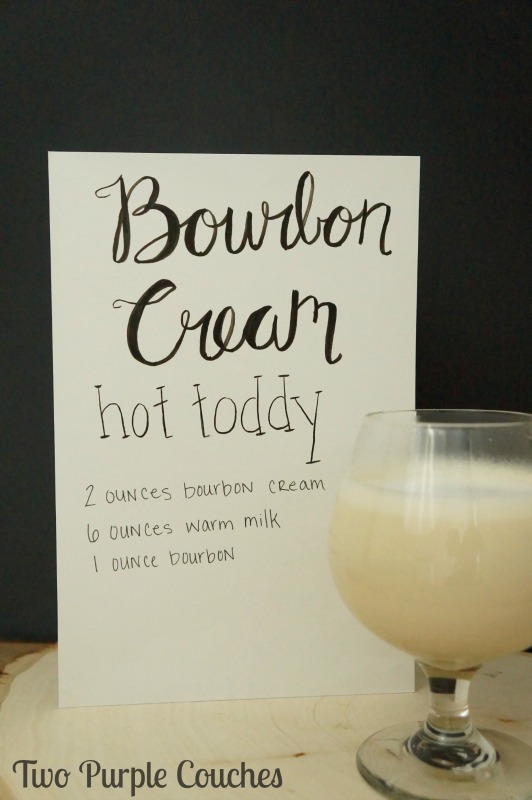 Bourbon
Cream
hot toddy
2 ounces bourbon cream
6 ounces warm milk
1 ounce bourbon
Two Purple Couches